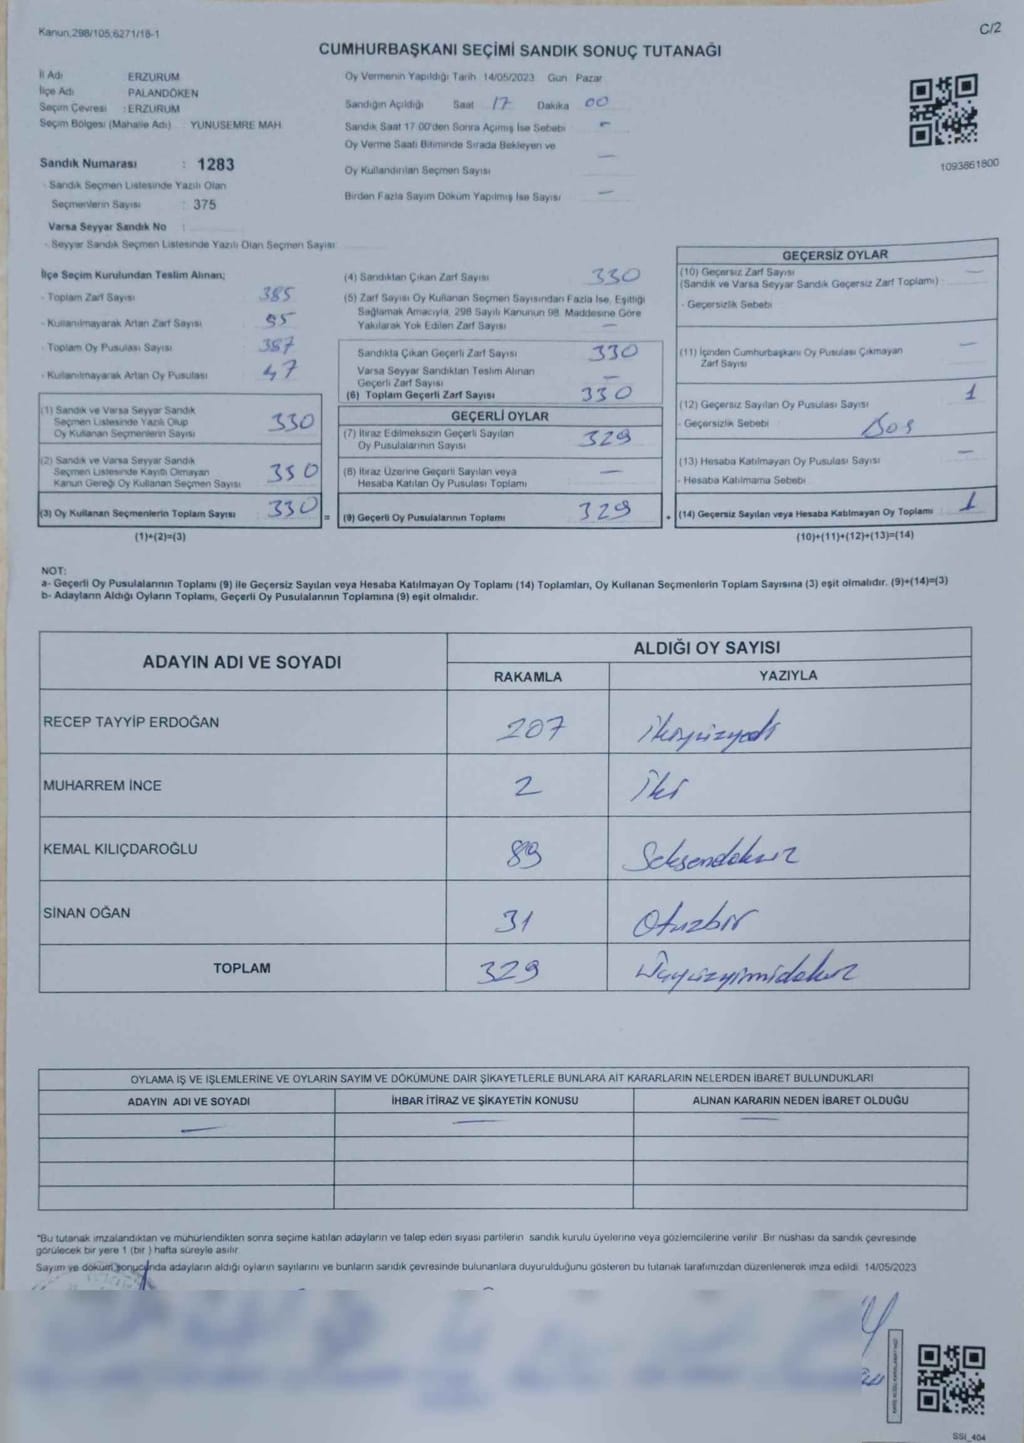 Kanun:298/105;6271/18-1
C/2
CUMHURBAŞKANI SEÇİMİ SANDIK SONUÇ TUTANAĞI
İl Adı ERZURUM
İlçe Adı PALANDÖKEN
Seçim Çevresi : ERZURUM
Seçim Bölgesi (Mahalle Adı) YUNUSEMRE MAH.
Sandık Numarası : 1283
- Sandık Seçmen Listesinde Yazılı Olan
Seçmenlerin Sayısı : 375
Varsa Seyyar Sandık No :
- Seyyar Sandık Seçmen Listesinde Yazılı Olan Seçmen Sayısı
Oy Vermenin Yapıldığı Tarih 14/05/2023 Gün Pazar
Sandığın Açıldığı Saat 17 Dakika 00
Sandık Saat 17.00'den Sonra Açılmış İse Sebebi -
Oy Verme Saati Bitiminde Sırada Bekleyen ve
Oy Kullandırılan Seçmen Sayısı —
Birden Fazla Sayım Döküm Yapılmış İse Sayısı —
1093861800
İlçe Seçim Kurulundan Teslim Alınan;
- Toplam Zarf Sayısı 385
- Kullanılmayarak Artan Zarf Sayısı
- Toplam Oy Pusulası Sayısı 387
- Kullanılmayarak Artan Oy Pusulası 47
(1) Sandık ve Varsa Seyyar Sandık
Seçmen Listesinde Yazılı Olup
Oy Kullanan Seçmenlerin Sayısı 330
(2) Sandık ve Varsa Seyyar Sandık
Seçmen Listesinde Kayıtlı Olmayan
Kanun Gereği Oy Kullanan Seçmen Sayısı
(3) Oy Kullanan Seçmenlerin Toplam Sayısı 330 =
(1)+(2)=(3)
(4) Sandıktan Çıkan Zarf Sayısı 330
(5) Zarf Sayısı Oy Kullanan Seçmen Sayısından Fazla İse, Eşitliği
Sağlamak Amacıyla, 298 Sayılı Kanunun 98. Maddesine Göre
Yakılarak Yok Edilen Zarf Sayısı —
Sandıkta Çıkan Geçerli Zarf Sayısı 330
Varsa Seyyar Sandıktan Teslim Alınan
Geçerli Zarf Sayısı —
(6) Toplam Geçerli Zarf Sayısı 330
GEÇERLİ OYLAR
(7) İtiraz Edilmeksizin Geçerli Sayılan
Oy Pusulalarının Sayısı 329
(8) İtiraz Üzerine Geçerli Sayılan veya
Hesaba Katılan Oy Pusulası Toplamı —
(9) Geçerli Oy Pusulalarının Toplamı 329 +
GEÇERSİZ OYLAR
(10) Geçersiz Zarf Sayısı —
(Sandık ve Varsa Seyyar Sandık Geçersiz Zarf Toplamı)
- Geçersizlik Sebebi
(11) İçinden Cumhurbaşkanı Oy Pusulası Çıkmayan
Zarf Sayısı —
(12) Geçersiz Sayılan Oy Pusulası Sayısı 1
- Geçersizlik Sebebi Boş
(13) Hesaba Katılmayan Oy Pusulası Sayısı —
- Hesaba Katılmama Sebebi
(14) Geçersiz Sayılan veya Hesaba Katılmayan Oy Toplamı 1
(10)+(11)+(12)+(13)=(14)
NOT:
a- Geçerli Oy Pusulalarının Toplamı (9) ile Geçersiz Sayılan veya Hesaba Katılmayan Oy Toplamı (14) Toplamları, Oy Kullanan Seçmenlerin Toplam Sayısına (3) eşit olmalıdır. (9)+(14)=(3)
b- Adayların Aldığı Oyların Toplamı, Geçerli Oy Pusulalarının Toplamına (9) eşit olmalıdır.
ADAYIN ADI VE SOYADI
ALDIĞI OY SAYISI
RAKAMLA YAZIYLA
RECEP TAYYİP ERDOĞAN 207 ikiyüzyedi
MUHARREM İNCE 2 İki
KEMAL KILIÇDAROĞLU 89 Seksendokuz
SİNAN OĞAN 31 Otuzbir
TOPLAM 329 Üçyüzyirmidokuz
OYLAMA İŞ VE İŞLEMLERİNE VE OYLARIN SAYIM VE DÖKÜMÜNE DAİR ŞİKAYETLERLE BUNLARA AİT KARARLARIN NELERDEN İBARET BULUNDUKLARI
ADAYIN ADI VE SOYADI İHBAR İTİRAZ VE ŞİKAYETİN KONUSU ALINAN KARARIN NEDEN İBARET OLDUĞU
— — —
*Bu tutanak imzalandıktan ve mühürlendikten sonra seçime katılan adayların ve talep eden siyasi partilerin sandık kurulu üyelerine veya gözlemcilerine verilir. Bir nüshası da sandık çevresinde
görülecek bir yere 1 (bir ) hafta süreyle asılır.
Sayım ve döküm sonucunda adayların aldığı oyların sayılarını ve bunların sandık çevresinde bulunanlara duyurulduğunu gösteren bu tutanak tarafımızdan düzenlenerek imza edildi. 14/05/2023
SSI_404